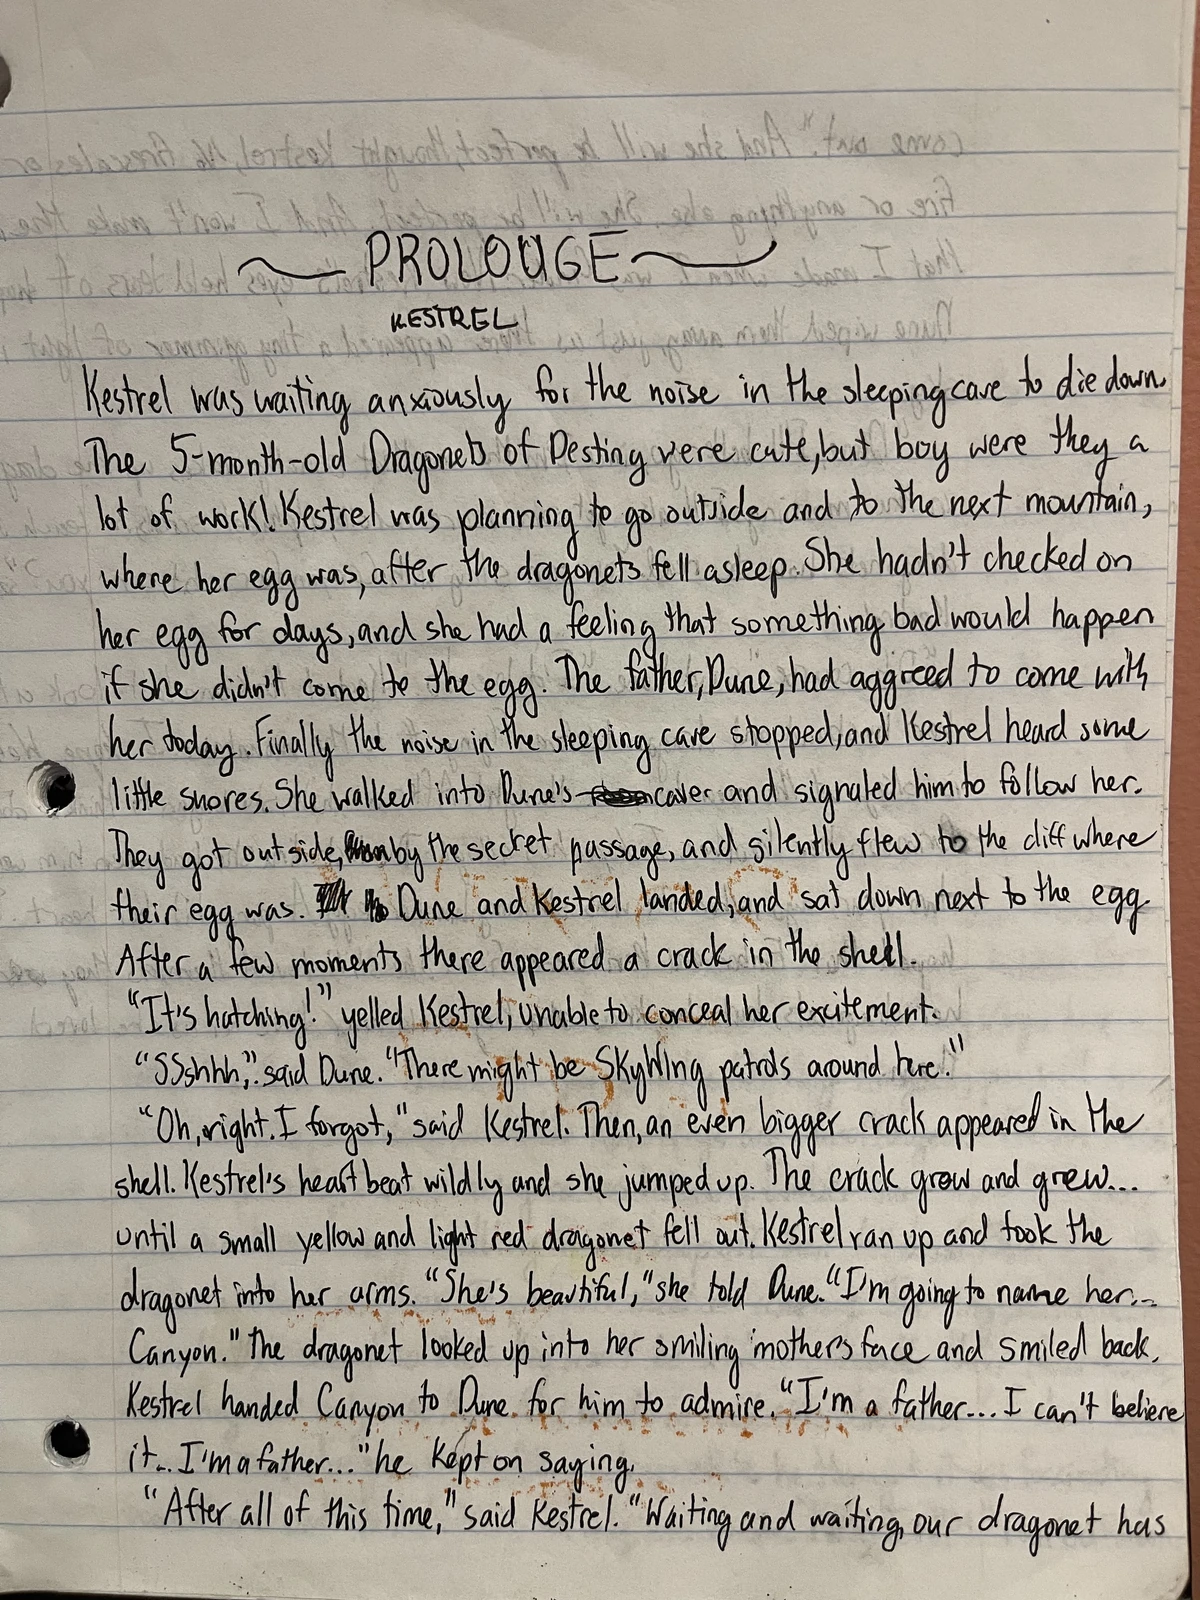 PROLOUGE
KESTREL
Kestrel was waiting anxiously for the noise in the sleeping cave to die down.
The 5-month-old Dragonets of Destiny were cute, but boy were they a
lot of work! Kestrel was planning to go outside and to the next mountain,
where her egg was, after the dragonets fell asleep. She hadn't checked on
her egg for days, and she had a feeling that something bad would happen
if she didn't come to the egg. The father, Dune, had aggreed to come with
her today. Finally the noise in the sleeping cave stopped, and Kestrel heard some
little snores. She walked into Dune's caver and signaled him to follow her.
They got outside, by the secret passage, and silently flew to the cliff where
their egg was. Dune and Kestrel landed, and sat down next to the egg
After a few moments there appeared a crack in the shell.
"It's hatching!" yelled Kestrel, unable to conceal her excitement.
"SSshhh," said Dune. "There might be SkyWing patrols around here."
"Oh, right. I forgot," said Kestrel. Then, an even bigger crack appeared in the
shell. Kestrel's heart beat wildly and she jumped up. The crack grew and grew...
until a small yellow and light red dragonet fell out. Kestrel ran up and took the
dragonet into her arms. "She's beautiful," she told Dune. "I'm going to name her...
Canyon." The dragonet looked up into her smiling mother's face and smiled back.
Kestrel handed Canyon to Dune for him to admire. "I'm a father... I can't believe
it... I'm a father..." he kept on saying.
"After all of this time," said Kestrel. "Waiting and waiting, our dragonet has